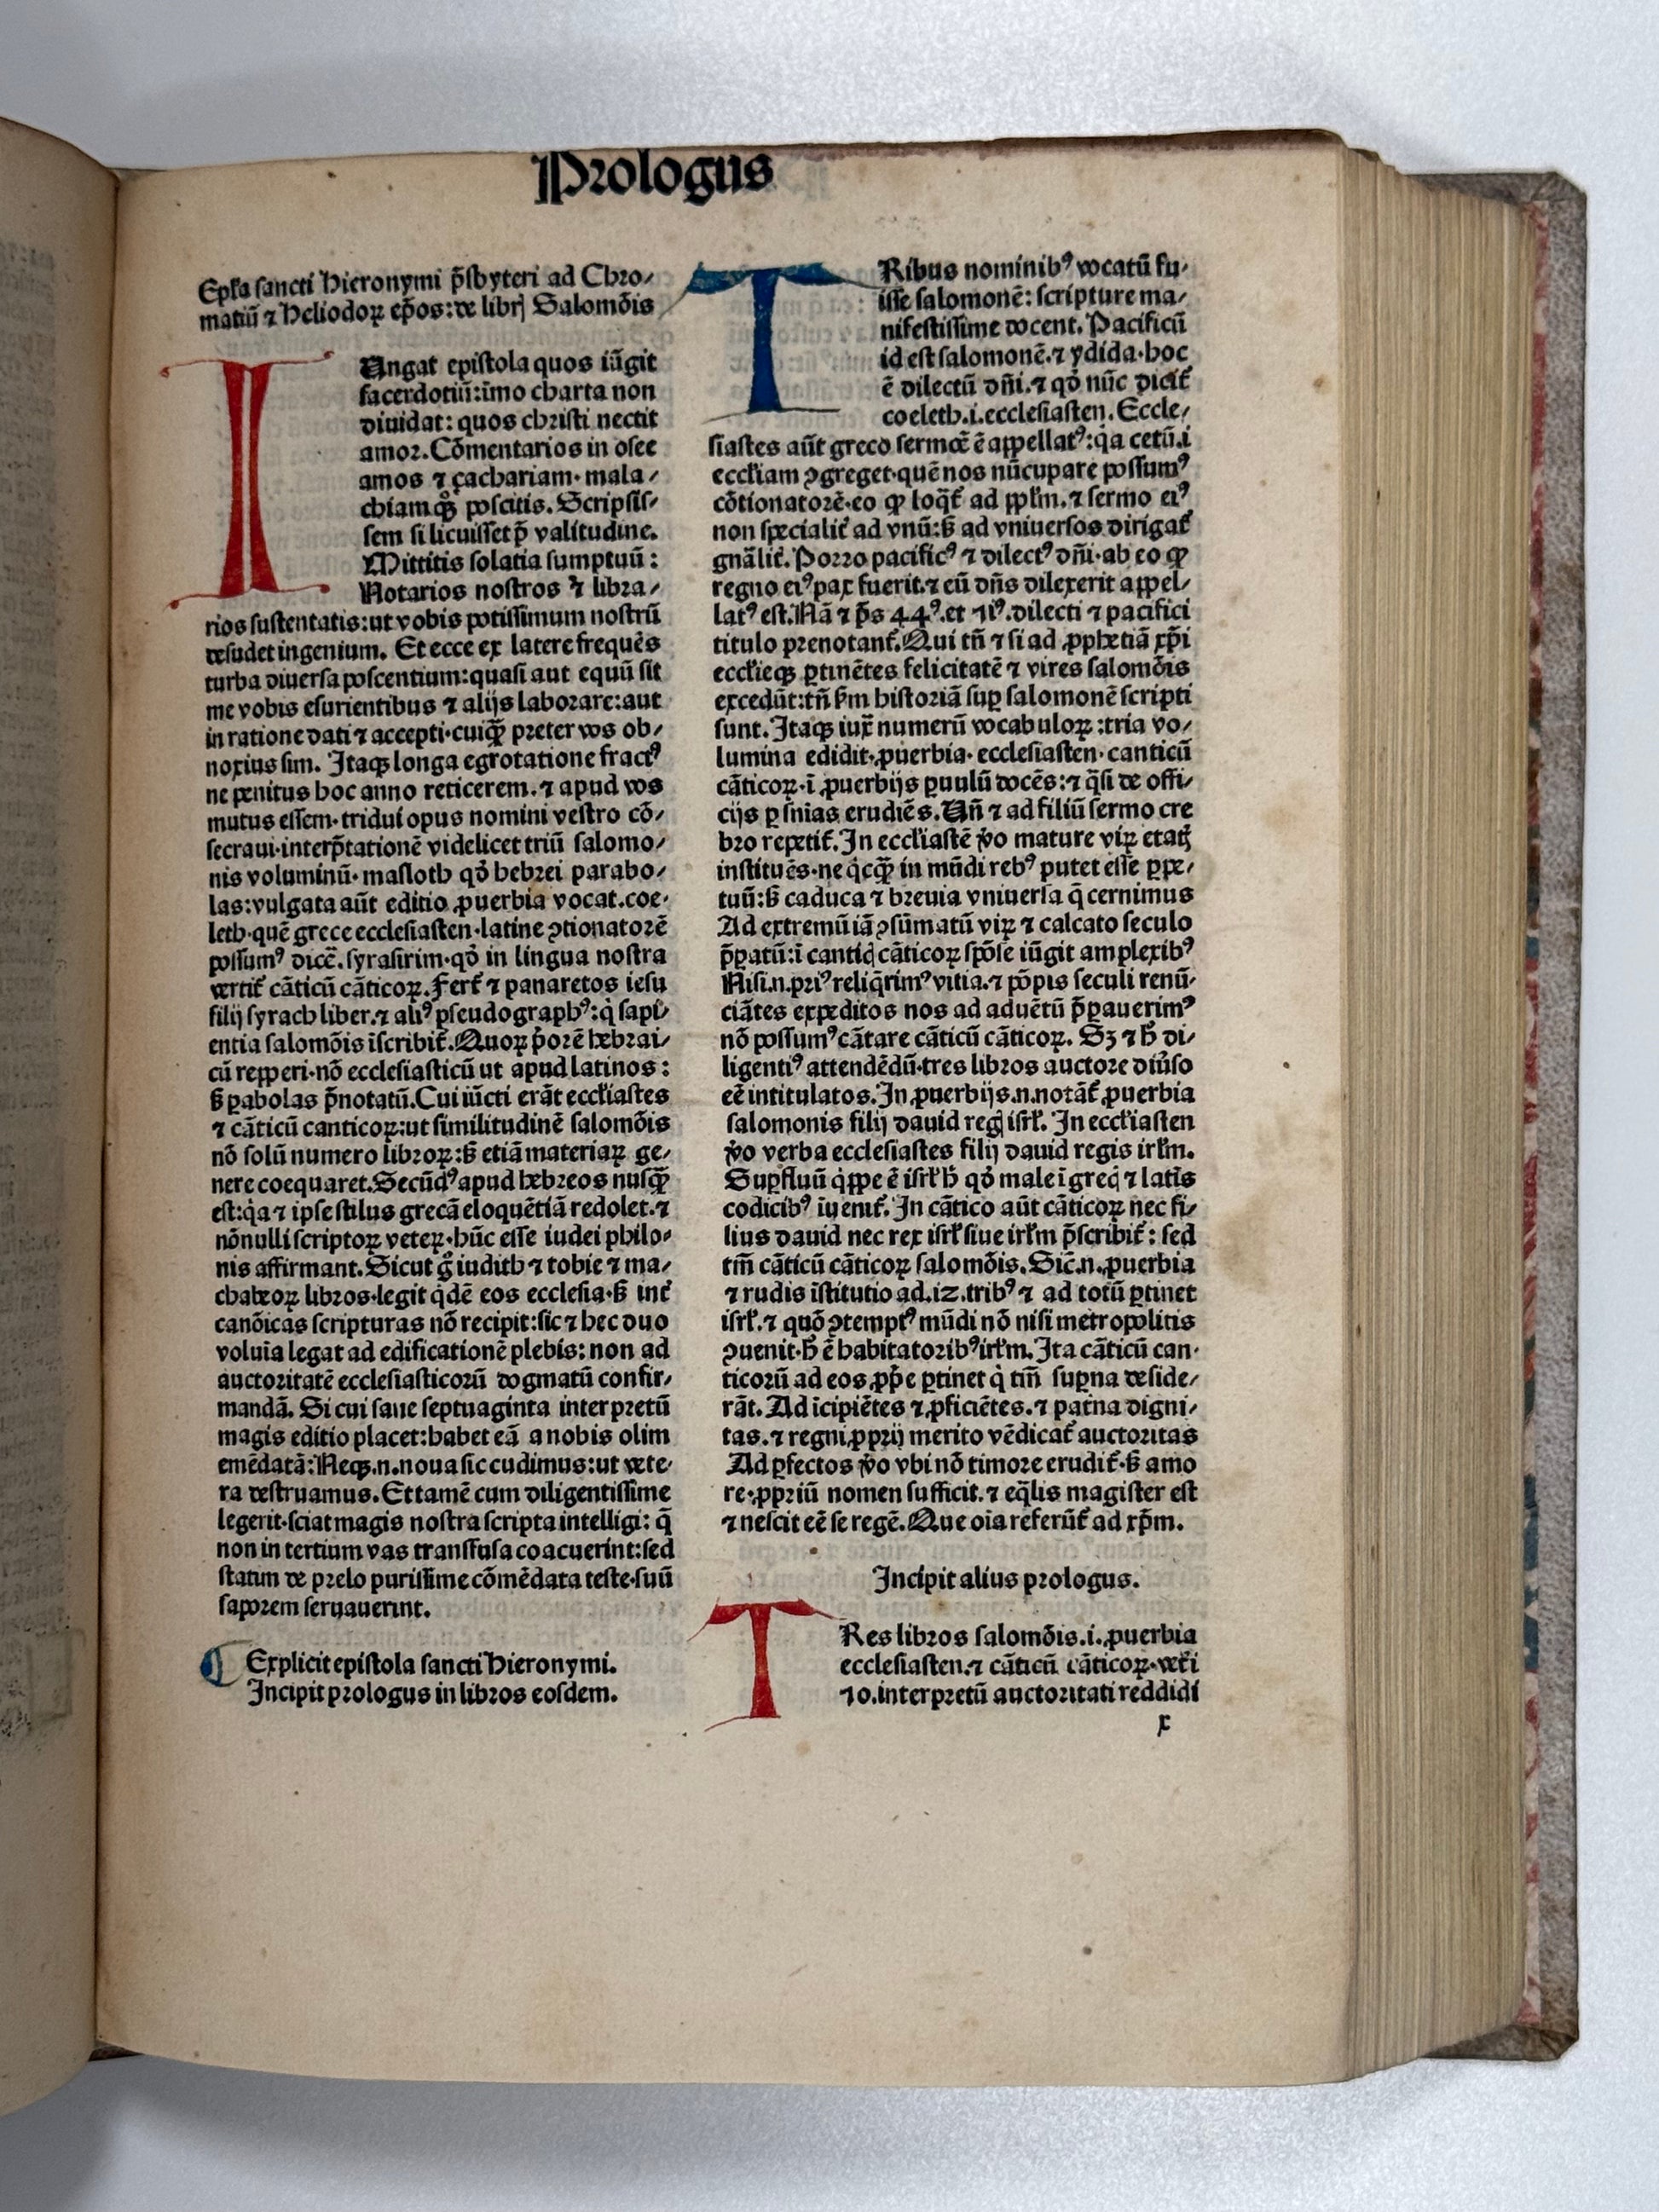 Prologus
Epl̄a sancti Hieronymi p̄sbyteri ad Chro/
matiū ⁊ Heliodoꝝ ep̄os: de librꝭ Salomōis
IUngat epistola quos iūgit
sacerdotiū: īmo charta non
diuidat: quos christi nectit
amor. Cōmentarios in osee
amos ⁊ çachariam· mala/
chiam qꝫ̊ poscitis. Scripsis/
sem si licuisset p̄ valitudine.
Mittitis solatia sumptuū:
Notarios nostros ⁊ libra/
rios sustentatis: ut vobis potissimum nostrū
desudet ingenium. Et ecce ex latere frequēs
turba diuersa poscentium: quasi aut equū sit
me vobis esurientibus ⁊ alijs laborare: aut
in ratione dati ⁊ accepti· cuiqꝫ̄ preter vos ob/
noxius sim. Itaqꝫ longa egrotatione fractꝰ
ne penitus hoc anno reticerem. ⁊ apud vos
mutus essem· tridui opus nomini vestro cō/
secraui· interp̄tationē videlicet triū salomo/
nis voluminū· masloth qḋ hebrei parabo/
las: vulgata aūt editio ꝓuerbia vocat. coe·
leth· quē grece ecclesiasten· latine ꝯtionatorē
possumꝰ dicē. syrasirim· qḋ in lingua nostra
vertit̄ cāticū cāticoꝝ. Fert̄ ⁊ panaretos iesu
filij syrach liber. ⁊ aliꝰ pseudographꝰ: q̇ sapi/
entia salomōis īscribit̄. Quoꝝ ṗorē hebrai/
cū repperi· nō ecclesiasticū ut apud latinos:
ß ꝑabolas p̄notatū. Cui iūcti erāt eccl̄iastes
⁊ cāticū canticoꝝ: ut similitudinē salomōis
nō solū numero libroꝝ: ß etiā materiaꝝ ge/
nere coequaret. Secūdꝰ apud hebreos nusqꝫ̄
est: q̇a ⁊ ipse stilus grecā eloquētiā redolet. ⁊
nōnulli scriptoꝝ veteꝝ· hūc esse iudei philo·
nis affirmant. Sicut g̊ iudith ⁊ tobie ⁊ ma/
chabeoꝝ libros· legit q̇dē eos ecclesia· ß int̄
canōicas scripturas nō recipit: sic ⁊ hec duo
voluīa legat ad edificationē plebis: non ad
auctoritatē ecclesiasticorū dogmatū confir/
mandā. Si cui sane septuaginta interpretū
magis editio placet: habet eā a nobis olim
emēdatā: Neqꝫ.n. noua sic cudimus: ut vete·
ra destruamus. Et tamē cum diligentissime
legerit· sciat magis nostra scripta intelligi: q̄
non in tertium vas transfusa coacuerint: sed
statim de prelo purissime cōmēdata teste· suū
saporem seruauerint.
¶ Explicit epistola sancti Hieronymi.
Incipit prologus in libros eosdem.
TRibus nominibꝰ vocatū fu·
isse salomonē: scripture ma/
nifestissime docent. Pacificū
id est salomonē. ⁊ ydida· hoc
ē dilectū dn̄i. ⁊ qḋ nūc dicit̄
coeleth .i. ecclesiasten. Eccle/
siastes aūt greco sermōe ē appellatꝰ: q̇a cetū .i
eccl̄iam ꝯgreget· quē nos nūcupare possumꝰ
cōtionatorē· eo ꝙ loqt̄ ad ppl̄m. ⁊ sermo eiꝰ
non specialit̄ ad vnū: ß ad vniuersos dirigat̄
gnālit̄. Porro pacificꝰ ⁊ dilectꝰ dn̄i· ab eo ꝙ
regno eiꝰ pax fuerit. ⁊ eū dn̄s dilexerit appel/
latꝰ est. Nā ⁊ p̄s 44ꝰ. et 71ꝰ. dilecti ⁊ pacifici
titulo prenotant̄. Qui tn̄ ⁊ si ad ꝓphetiā xp̄i
eccl̄ieqꝫ ꝑtinētes felicitatē ⁊ vires salomōis
excedūt: tn̄ ẜm historiā suꝑ salomonē scripti
sunt. Itaqꝫ iux̄ numerū vocabuloꝝ: tria vo/
lumina edidit· ꝓuerbia· ecclesiasten· canticū
cāticoꝝ· ī ꝓuerbijs ꝑuulū docēs: ⁊ q̄si de offi/
cijs ꝑ sn̄ias erudiēs. Un̄ ⁊ ad filiū sermo cre
bro repetit̄. In eccl̄iastē v̊o mature viꝝ etatꝭ
instituēs· ne q̇cqꝫ̄ in mūdi rebꝰ putet esse ꝑpe/
tuū: ß caduca ⁊ breuia vniuersa q̄ cernimus
Ad extremū iā ꝯsūmatū viꝝ ⁊ calcato seculo
p̄ꝑatū: ī cantic̣ cāticoꝝ spōse iūgit amplexibꝰ
Nisi .n. priꝰ reliq̄rimꝰ vitia. ⁊ pōpis seculi renū·
ciātes expeditos nos ad aduētū p̄ꝑauerimꝰ
nō possumꝰ cātare cāticū cāticoꝝ. Sꝫ ⁊ h̄ di/
ligentiꝰ attendēdū· tres libros auctore diūso
eē intitulatos. In ꝓuerbijs .n. notāt̄ ꝓuerbia
salomonis filij dauid regꝭ isrl̄. In eccl̄iasten
v̊o verba ecclesiastes filij dauid regis irl̄m.
Suꝑfluū q̇ppe ē isrl̄ h̄ qḋ male ī grecꝭ ⁊ latīs
codicibꝰ īuenit̄. In cātico aūt cāticoꝝ nec fi/
lius dauid nec rex isrl̄ siue irl̄m p̄scribit̄: sed
tm̄ cāticū cāticoꝝ salomōis. Sic̄ .n. ꝓuerbia
⁊ rudis īstitutio ad .12. tribꝰ ⁊ ad totū ꝑtinet
isrl̄. ⁊ quō ꝯtemptꝰ mūdi nō nisi metropolitis
ꝯuenit· h̄ ē habitatoribꝰ irl̄m. Ita cāticū can·
ticorū ad eos ꝓpe ꝑtinet q̇ tm̄ suꝑna deside/
rāt. Ad īcipiētes ⁊ ꝓficiētes. ⁊ patna digni/
tas. ⁊ regni ꝓprij merito vēdicat̄ auctoritas
Ad ꝑfectos v̊o vbi nō timore erudit̄· ß amo
re· ꝓpriū nomen sufficit. ⁊ eq̄lis magister est
⁊ nescit eē se regē. Que oīa referūt̄ ad xp̄m.
Incipit alius prologus.
TRes libros salomōis .i. ꝓuerbia
ecclesiasten. ⁊ cāticū cāticoꝝ· vet̄i
70. interpretū auctoritati reddidi
x